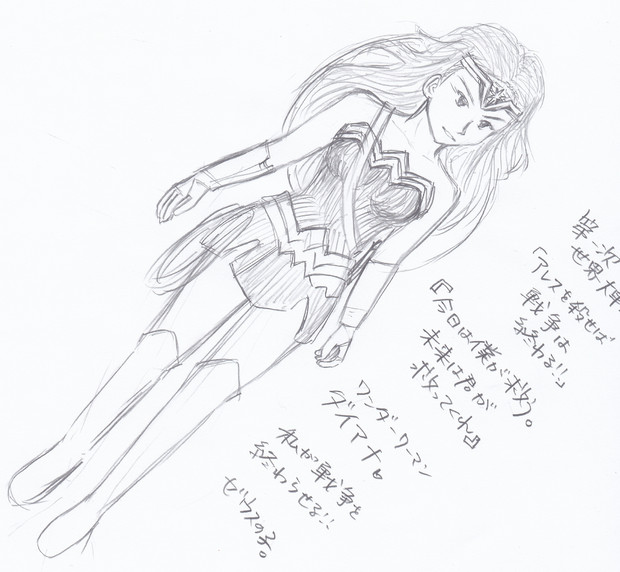 第一次
世界大戦
「アレスを殺せば
戦争は
終わる!!」
『今日は僕が救う。
未来は君が
救ってくれ』
ワンダーウーマン
ダイアナ。
私が戦争を
終わらせる!!
ゼウスの子。